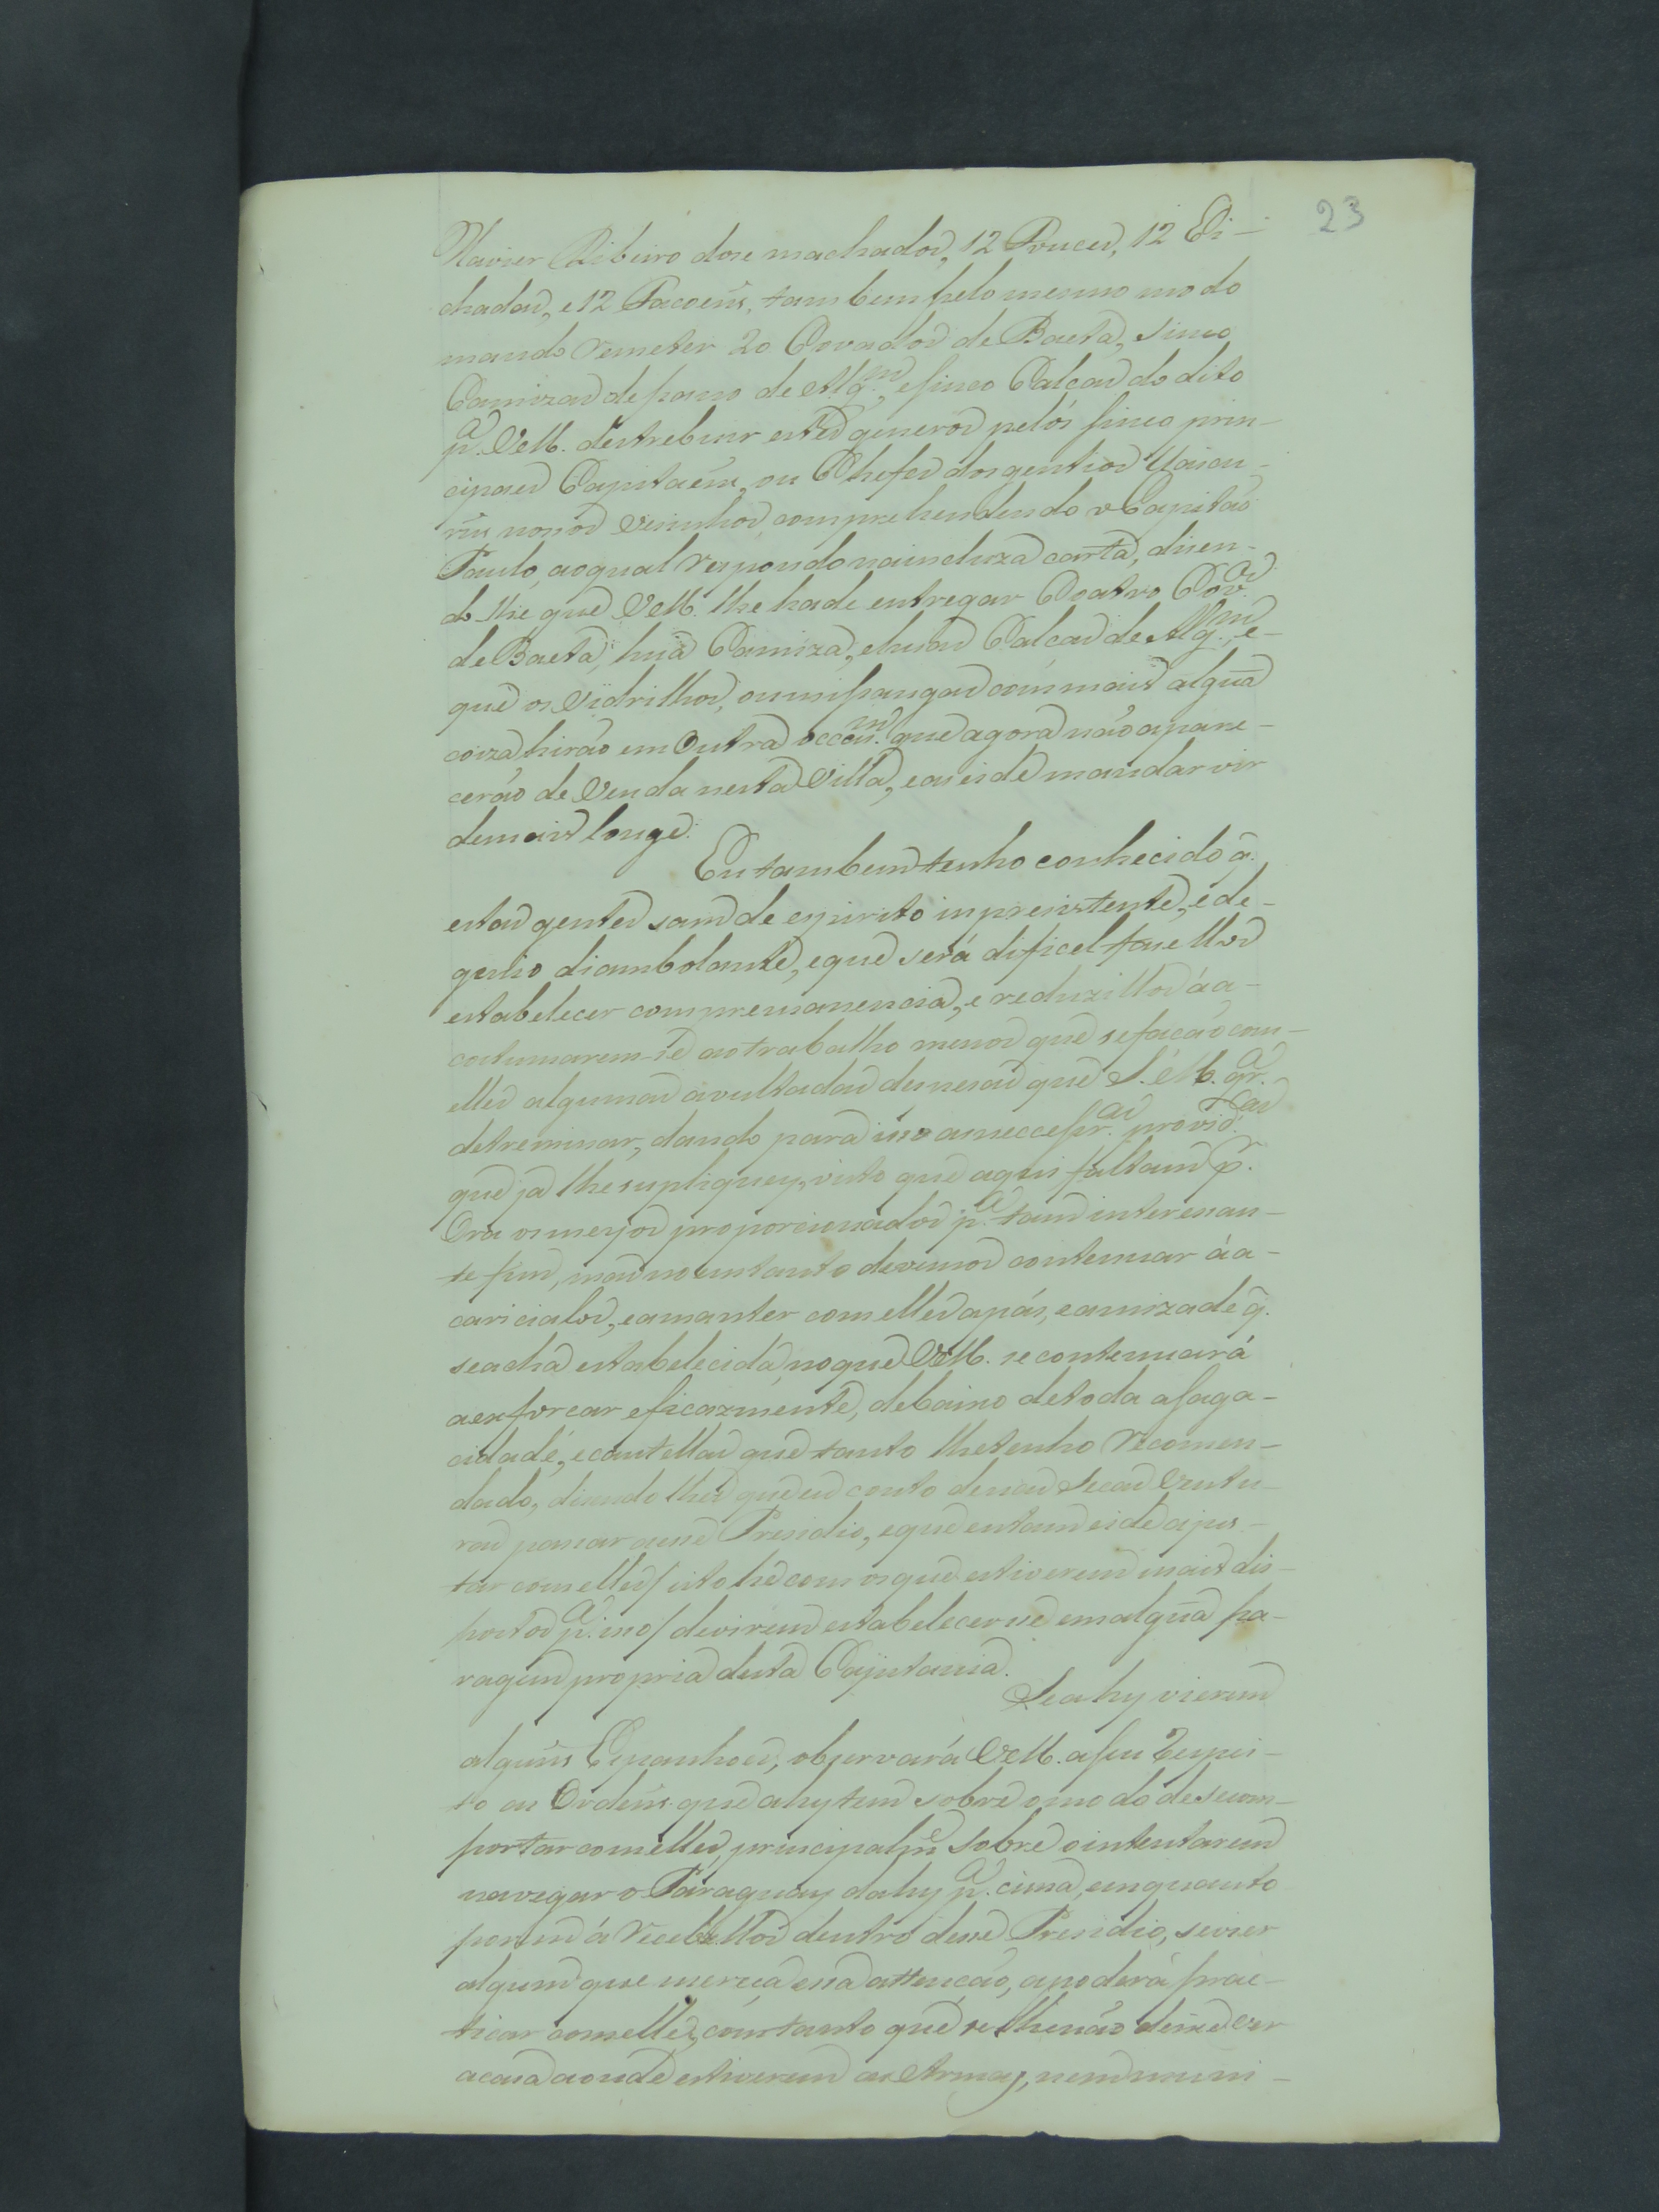 23
Xavier Ribeiro doze machados, 12 Fouces, 12 En-
chadas, e 12 Facoens, tambem pelo mesmo modo
mando remeter 20 Covados de Baeta, sinco
Camizas de pano de Alg.m, e sinco Calcas do dito
p.a VM. destrebuir estes generos pelos sinco prin-
cipaes Capitaens, ou Chefes dos gentios Uaicu-
rus nossos vesinhos, comprehendendo o Capitaõ
Paulo, ao qual respondo na incluza carta, disen-
do lhe que VM. lhe hade entregar Coatro Cov.os
de Baeta, huã Camiza, e huas Calcas de Alg.m, e-
que os vidrilhos, ou missangas com mais algua
coiza hiraõ em outra occ.m que agora naõ apare-
ceraõ de venda nesta Villa, e as eide mandar vir
de mais longe.
Eu tambem tenho conhecido q̃.
estas gentes sam de espirito inpresistente, e de-
genio diambolante, e que será dificel faze llos
estabelecer com premanencia, e reduzillos á a-
costumarem-se ao trabalho menos que se facaõ com-
elles algumas avultadas despesas que S. M. q.r
detreminar, dando para isso as neccessr.as provid.cas
que já lhe supliquey, visto que aqui faltam p.r
Ora os meyos proporcionados p.a tam interessan-
te fim, mas no entanto devemos contenuar á a-
caricialos, e a manter com elles a pás, e amizade q̃.
se acha estabelecida, no que VM. se contenuará
a esforcar eficazmente, debaixo de toda a saga-
cidade, e cautellas que tanto lhe tenho recomen-
dado, disendo lhes que eu conto de nas Secas vintu-
ras passar a esse Presidio, e que entam eide ajus-
tar com elles / isto he com os que estiverem mais dis-
postos p.a isso / de virem estabelecer se em algua pa-
ragem propria desta Capitania.
Se ahy vierem
alguns Espanhoes, observará VM. a seu respei-
to as Ordens que ahy tem sobre o modo de se com-
portar com elles, principalm.e sobre o intentarem
navegar o Paraguay dahy p.a cima, emquanto
porem á recebellos dentro desse Presidio, se vier
algum que mereca essa attencaõ, a poderá prac-
ticar com elles, com tanto que se lhe naõ deixe ver
a casa aonde estiverem as Armas, nem muni-